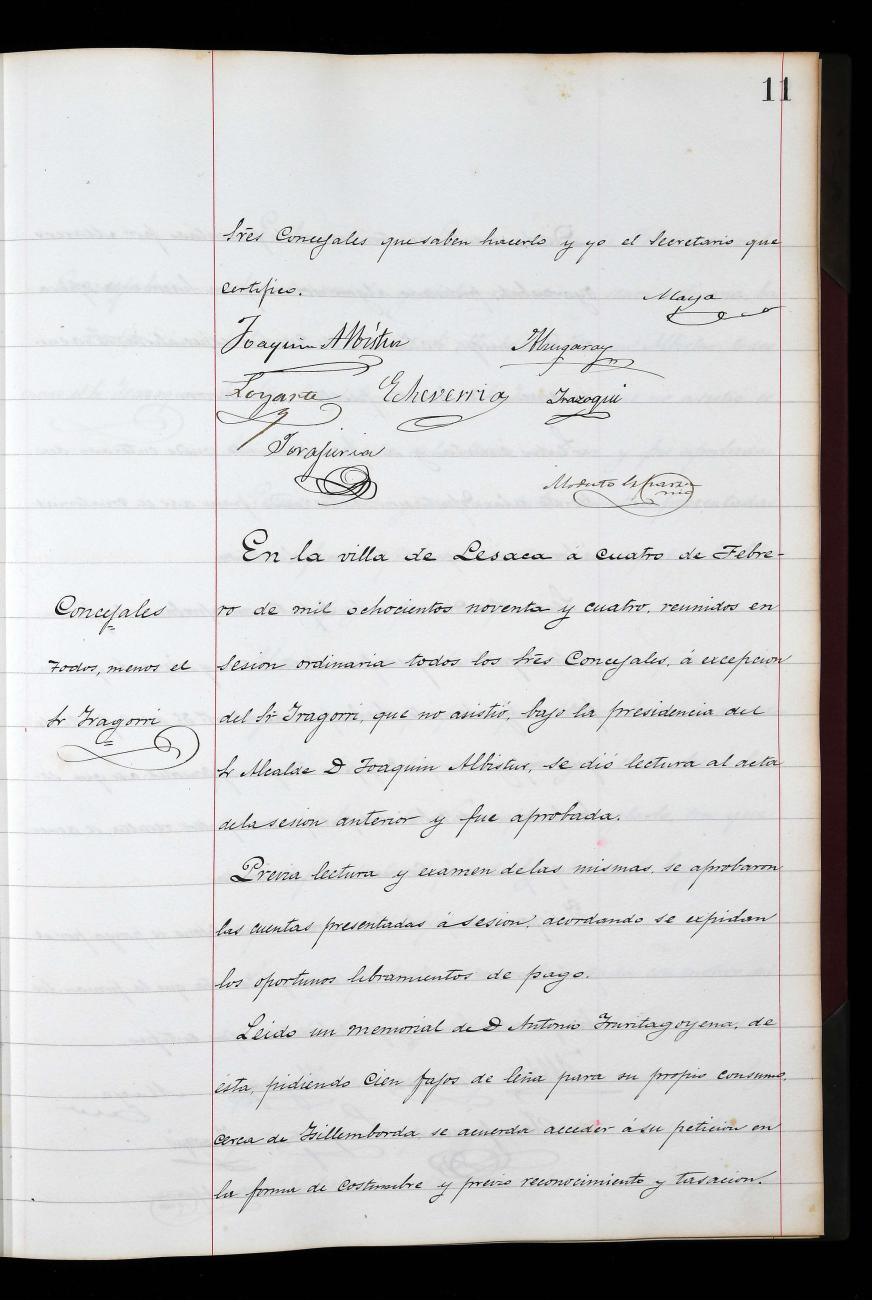 11
Sres Concejales que saben hacerlo y yo el Secretario que
certifico.
Maya
Joaquin Albistur
Mugaray
Loyarte Echeverria Irazoqui
Modesto
En la villa de Lesaca á cuatro de Febre-
ro de mil ochocientos noventa y cuatro, reunidos en
sesion ordinaria todos los Sres Concejales, á excepcion
del Sr Iragorri, que no asistió, bajo la presidencia del
Sr Alcalde D Joaquin Albistur, se dió lectura al acta
de la sesion anterior y fue aprobada.
Concejales
Todos, menos el
Sr Iragorri
Previa lectura y examen de las mismas, se aprobaron
las cuentas presentadas á sesion, acordando se expidan
los oportunos libramientos de pago.
Leido un memorial de D Antonio Ituritagoyena, de
ésta, pidiendo cien fajos de leña para su propio consumo,
cerca de se acuerda acceder á su peticion en
la forma de costumbre y previo reconocimiento y tasacion.